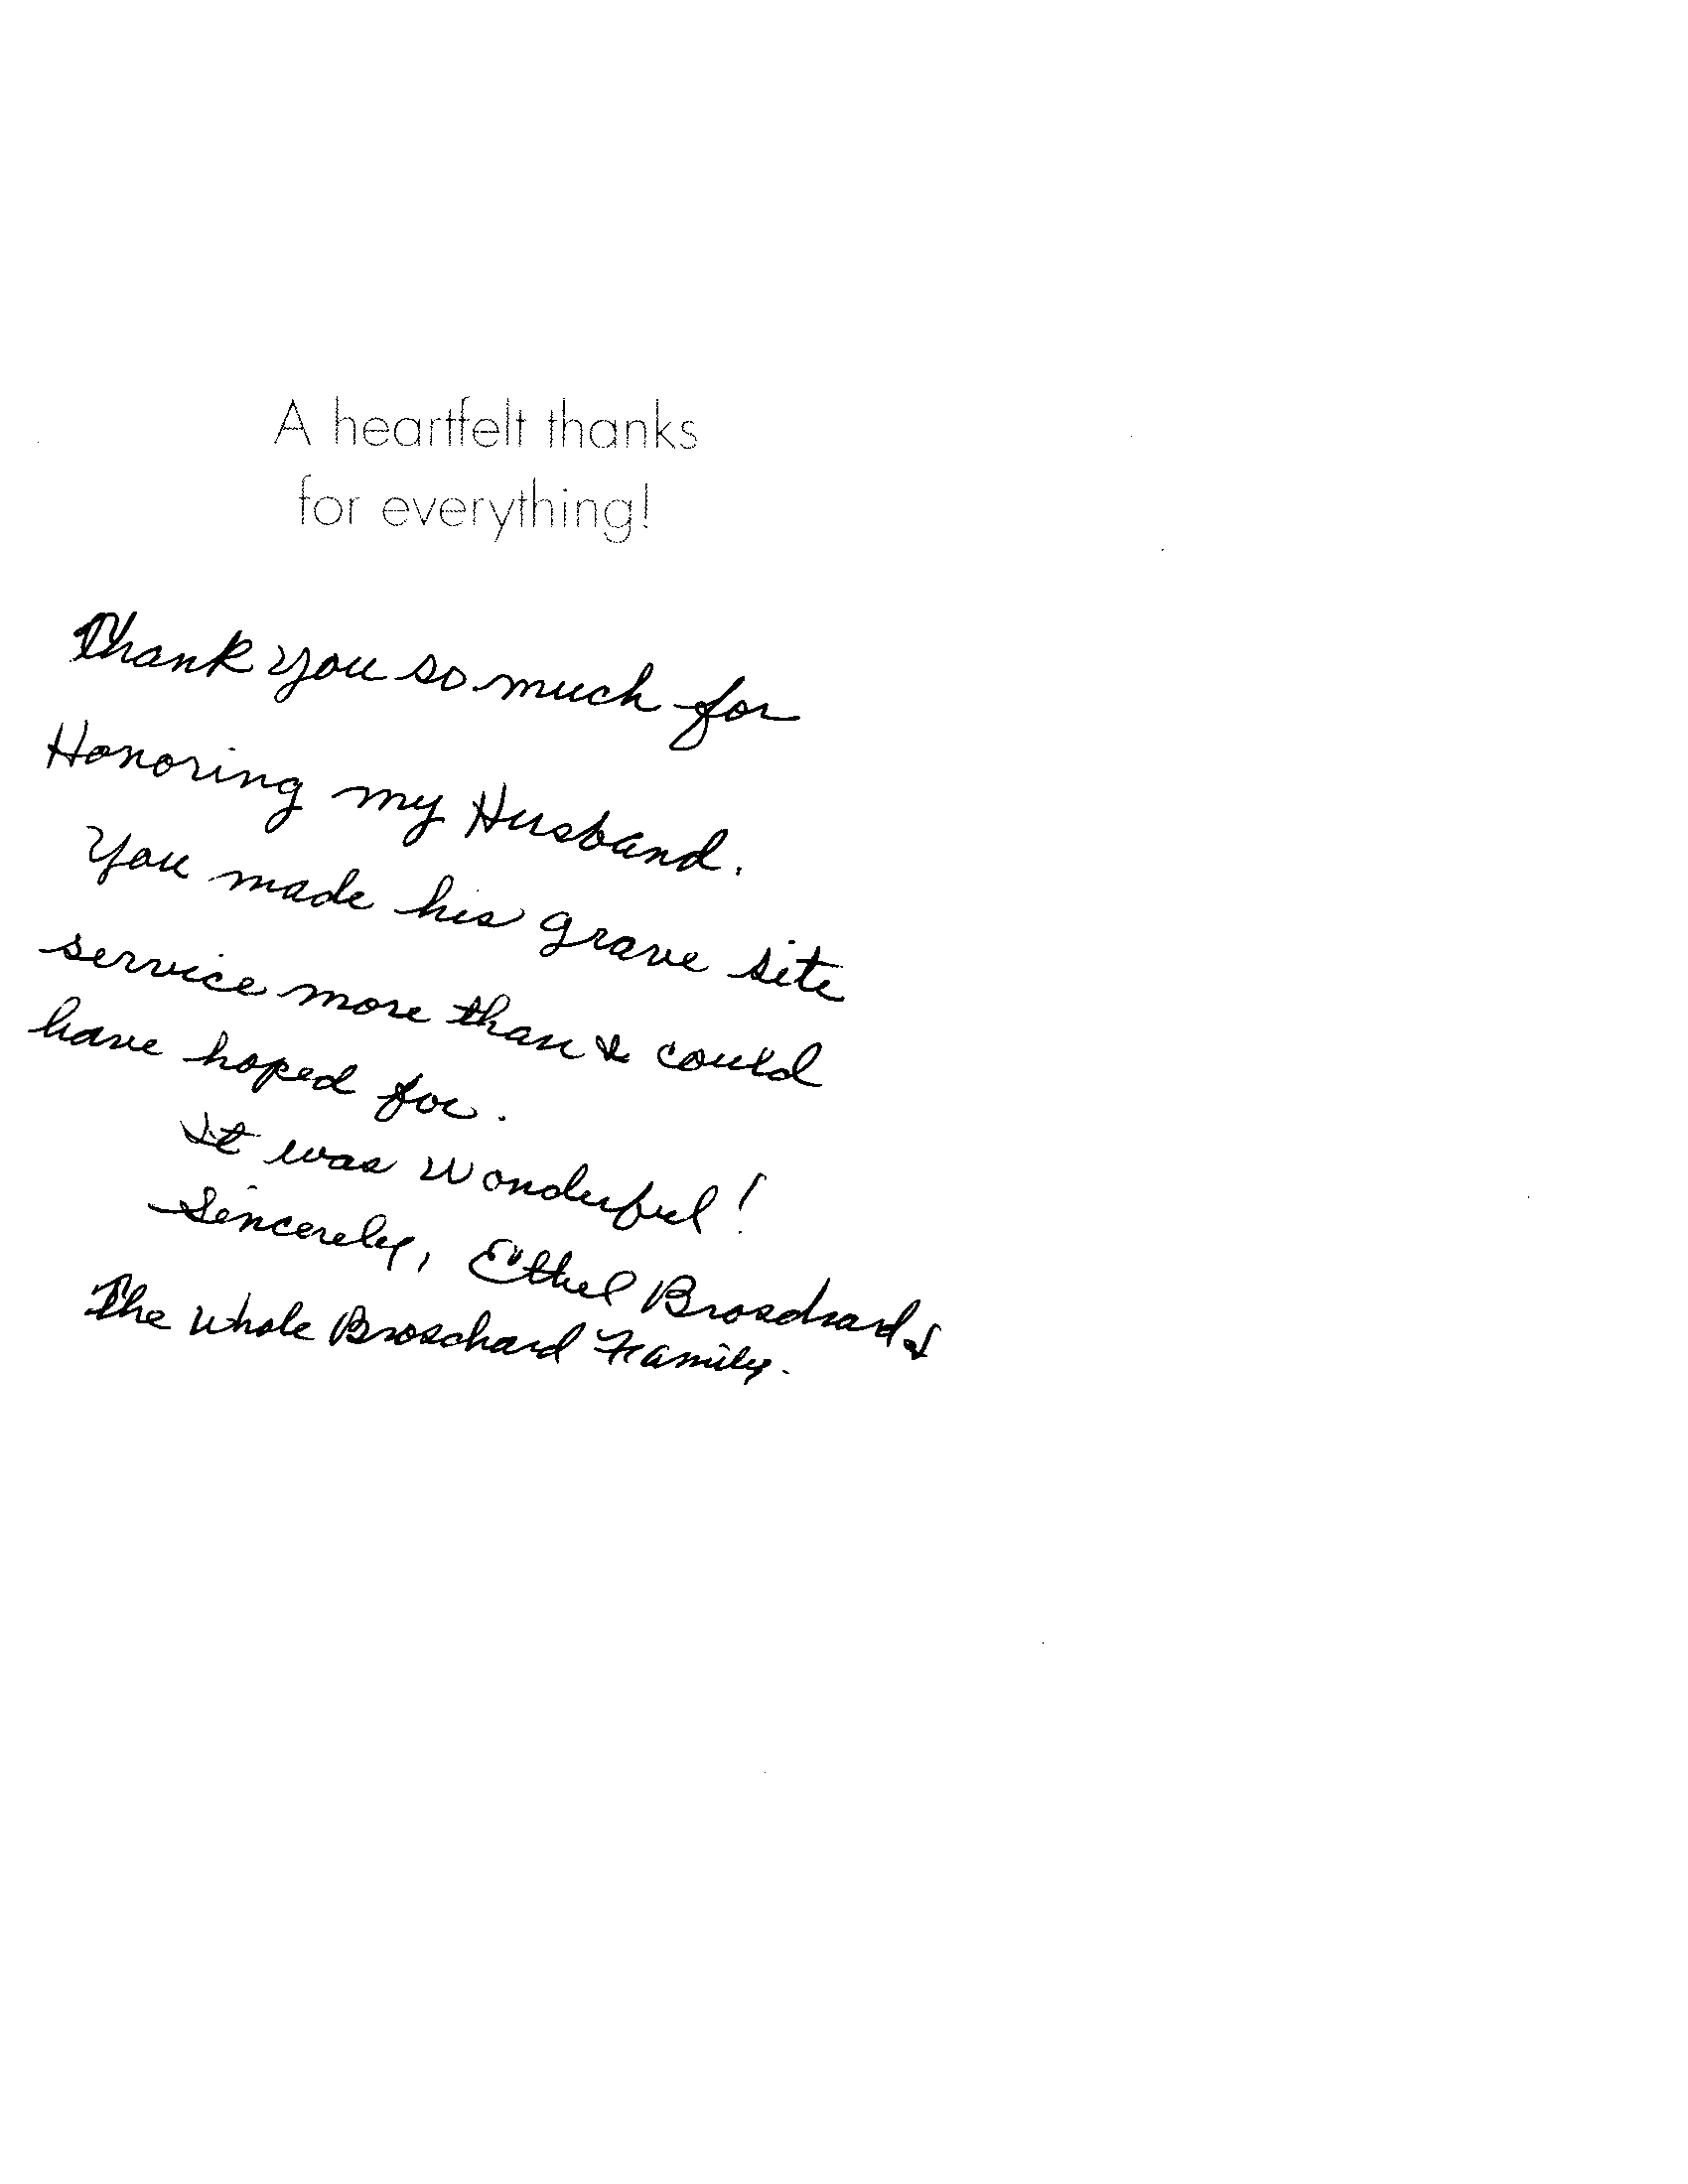 A heartfelt thanks
for everything!
Thank you so much for
Honoring my Husband.
You made his grave site
service more than I could
have hoped for.
It was wonderful!
Sincerely, Ethel Broschard &
The Whole Broschard Family.